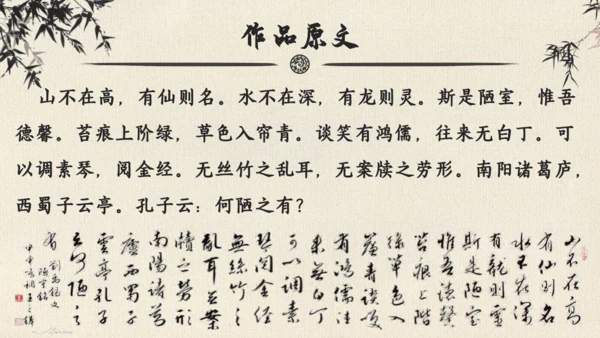 作品原文
山不在高，有仙则名。水不在深，有龙则灵。斯是陋室，惟吾
德馨。苔痕上阶绿，草色入帘青。谈笑有鸿儒，往来无白丁。可
以调素琴，阅金经。无丝竹之乱耳，无案牍之劳形。南阳诸葛庐，
西蜀子云亭。孔子云：何陋之有？
山不在高
有仙則名
水不在深
有龍則靈
斯是陋室
惟吾德馨
苔痕上階
綠草色入
簾青談笑
有鴻儒往
來無白丁
可以調素
琴閱金經
無絲竹之
亂耳無案
牘之勞形
南陽諸葛
廬西蜀子
雲亭孔子
云何陋之
有 劉禹錫文
陋室銘